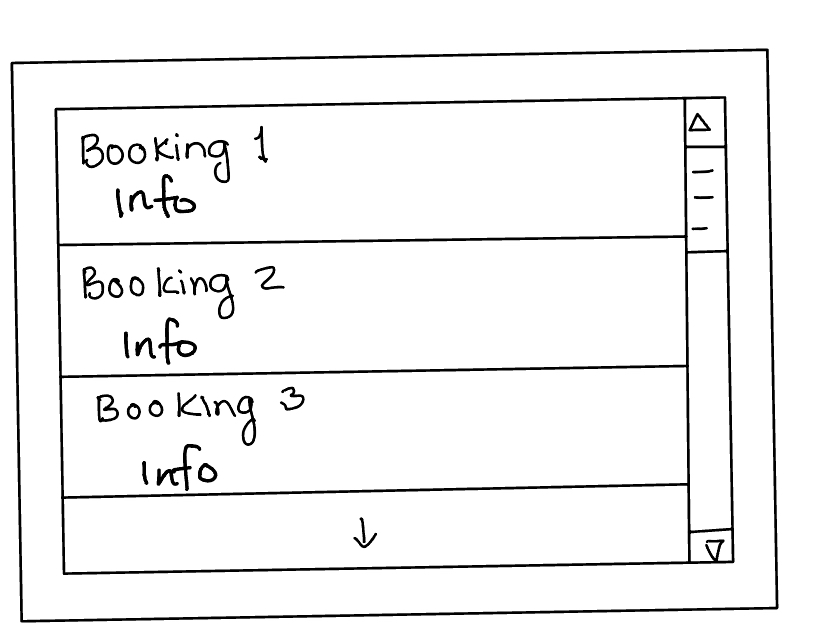 Booking 1
Info
Booking 2
Info
Booking 3
Info